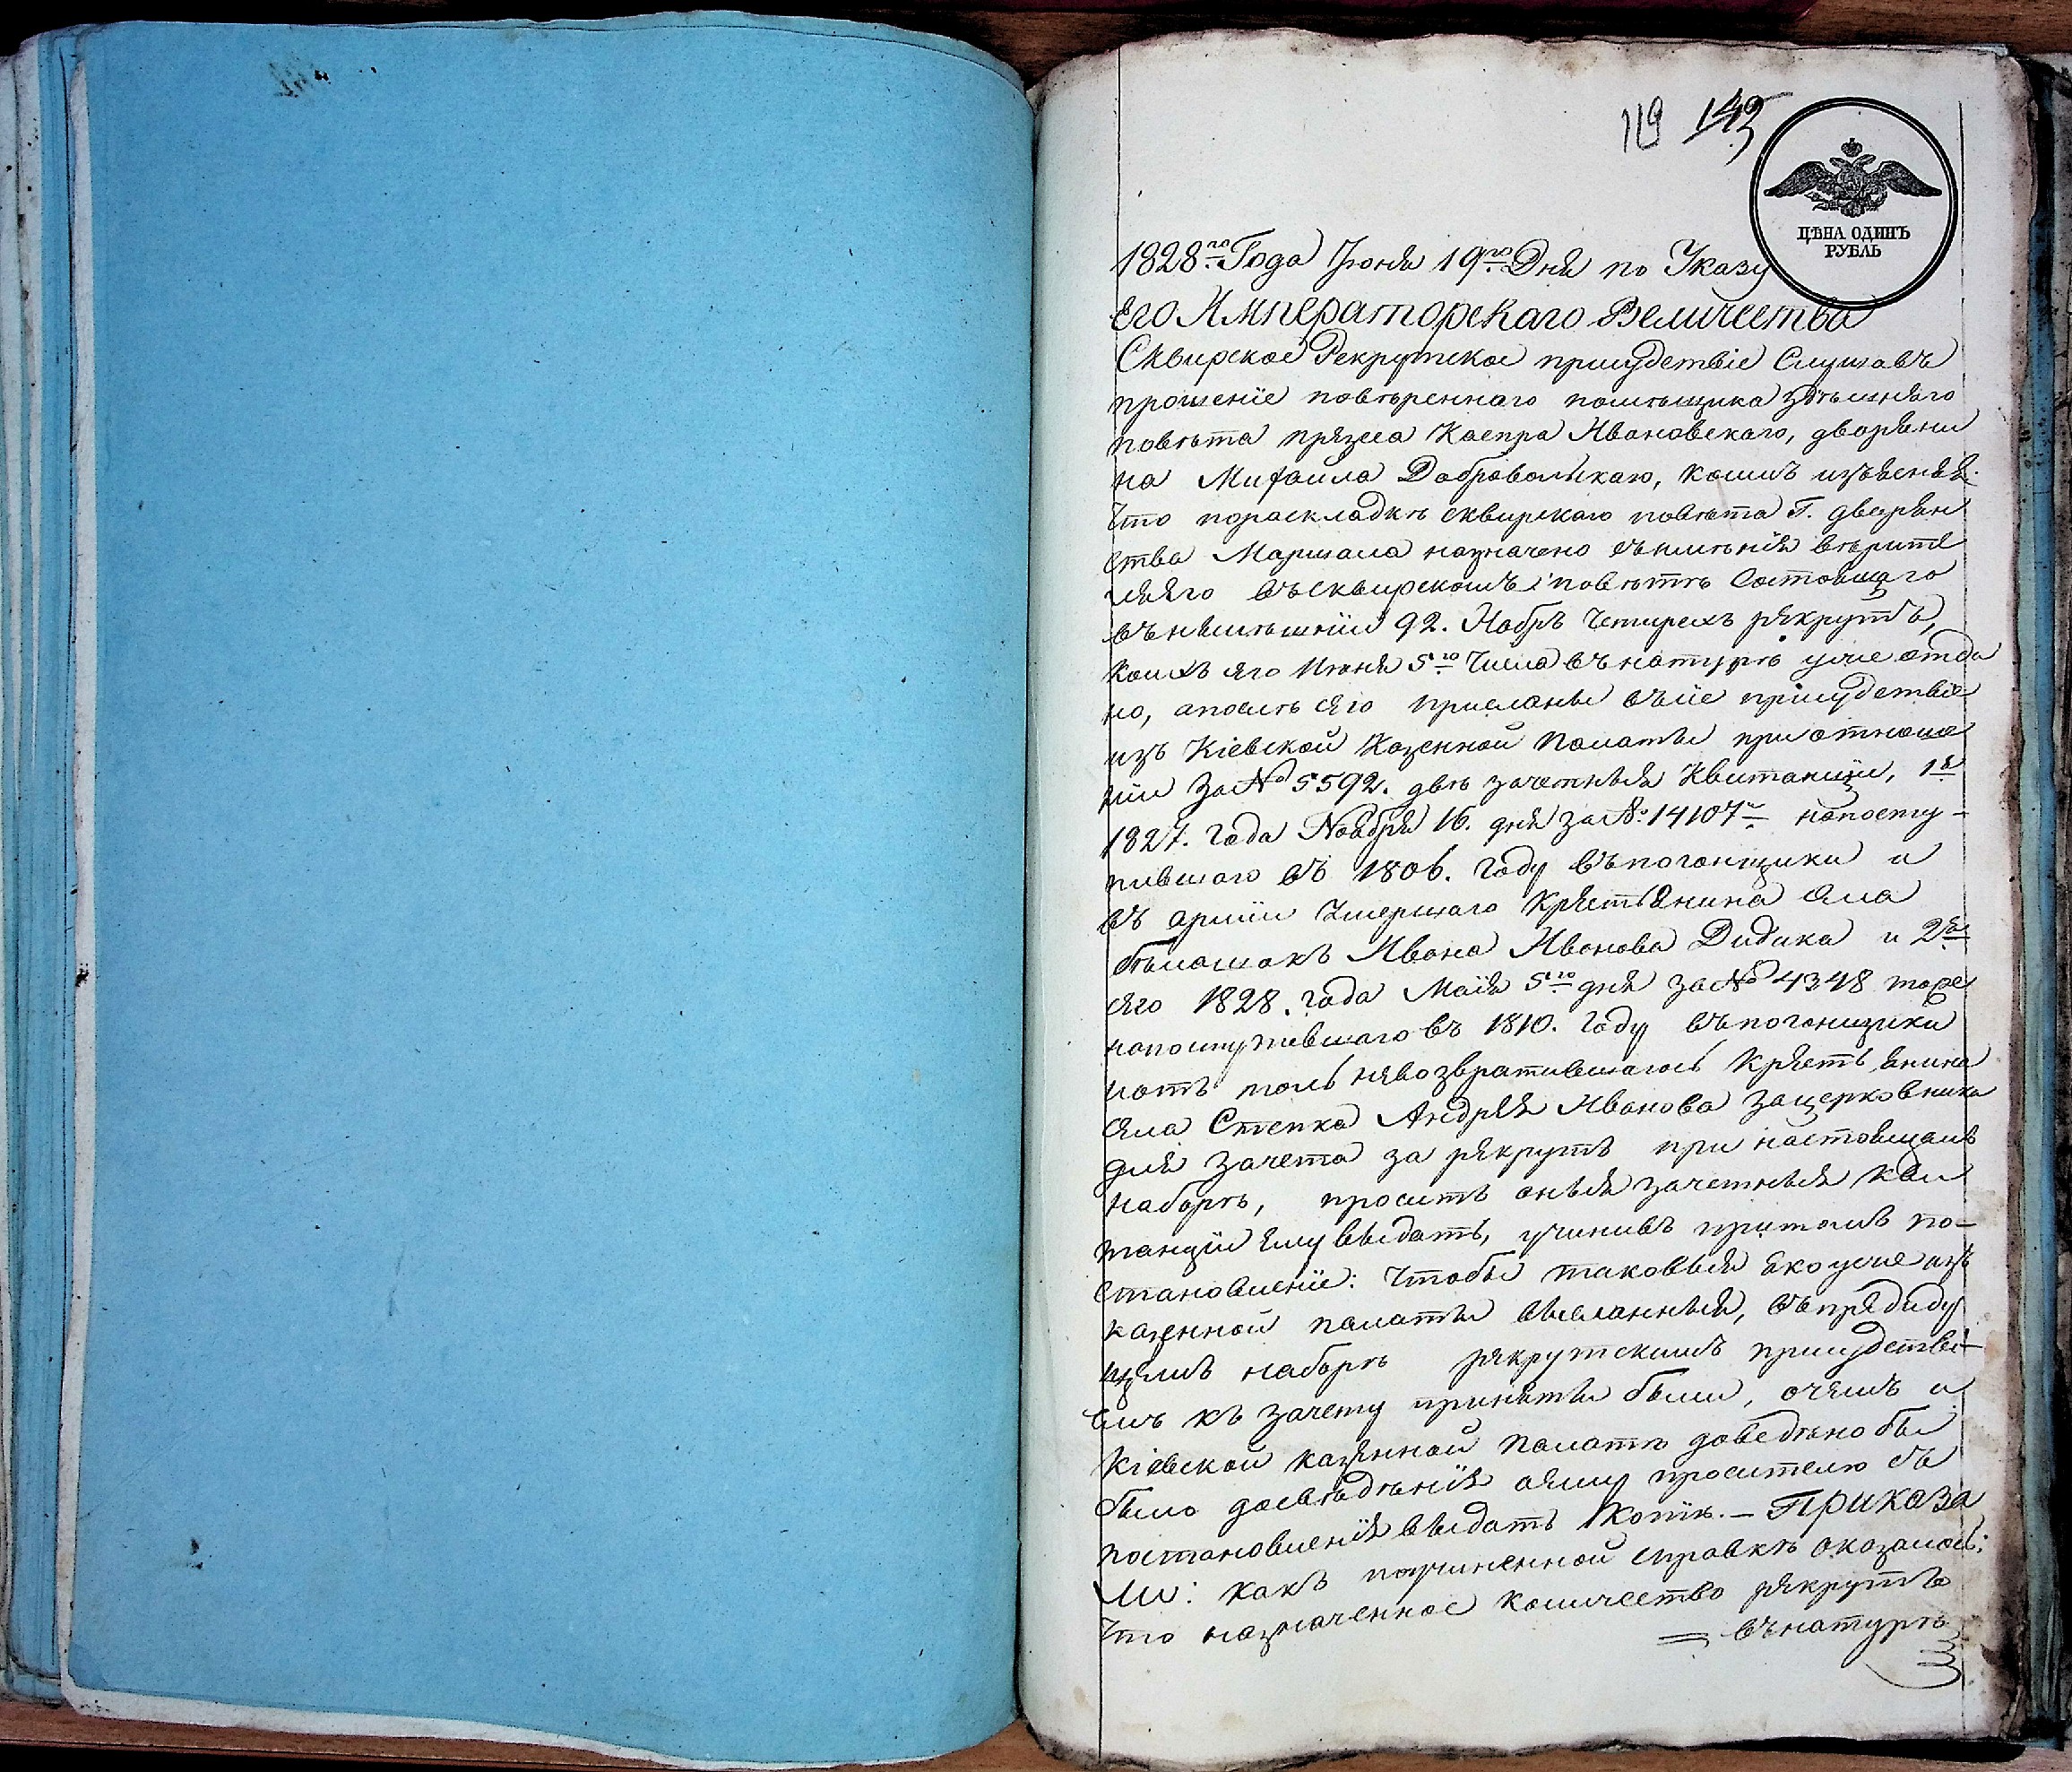 119 149
ЦѢНА ОДИНЪ
РУБЛЬ
1828го Года Іюня 19го Дня по Указу
Его Императорскаго Величества
Сквирское Рекрутское присудствіе Слушавъ
прошеніе повѣреннаго помѣщика здѣшняго
повѣта президента Каспра Ивановскаго, дворяни
на Михайла Добровольскаго, коимъ изъясняя
Что пораскладкѣ сквирскаго повѣта Г. дворян
ства Маршала назначено съимѣнія вѣрите
ля его въсквирскомъ повѣтѣ Состоящаго
въ нынѣшній 92. Наборъ Четирехъ рекрутъ,
коихъ его Июня 5го Числа въ натурѣ уже отда
но, апослѣ сего присланы въсіе присудствіе
изъ Кіевской Казенной Палаты при отноше
ніи За № 5592. двѣ зачетныя Квитанціи, 1я
1827. года Ноября 16. дня за № 14107м напосту-
пившаго въ 1806. году въпогонщики и
въ арміи Умершаго Крестьянина села
Бѣлашокъ Ивана Иванова Дидика и 2я
сего 1828. года Маія 5го дня за № 4348 тоже
напоступившаго въ 1810. году въпогонщики
и отъ толь невозвратившагось Крестьянина
села Степка Андрея Иванова Зацерковника
для зачета за рекрутъ при настоящемъ
наборѣ, проситъ оныя зачетныя кви
танціи ему выдать, учинивъ притомъ по-
становленіе: Чтобы таковыя яко уже изъ
казенной палаты высланныя, въпредиду
щемъ наборѣ рекрутскимъ присудстві-
емъ къ зачету приняты были, очемъ и
Кіевской казенной палатѣ доведено бы
было досвѣдѣнія аему просителю съ
постановленія выдать Копію. — Приказа
ли: какъ поучиненной справкѣ оказалось;
Что назначенное количество рекрутъ
= въ натурѣ